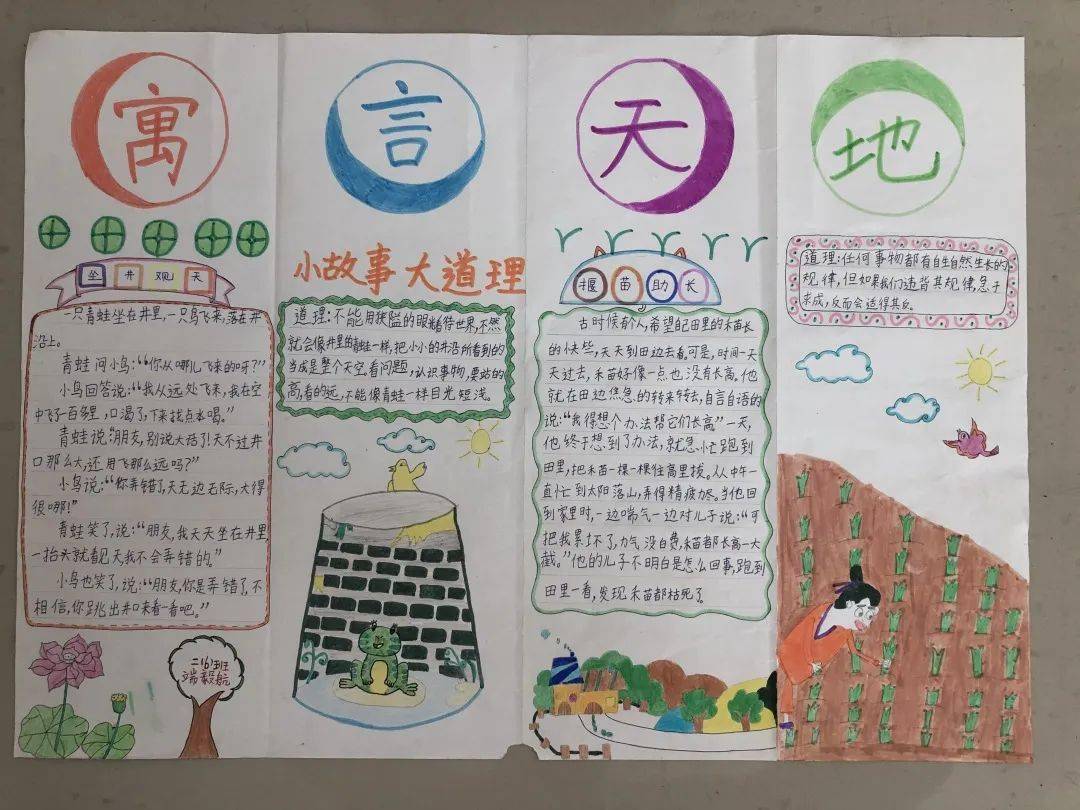 寓言天地
小故事 大道理
坐井观天
一只青蛙坐在井里,一只鸟飞来,落在井
沿上。
青蛙问小鸟:“你从哪儿飞来的呀?”
小鸟回答说:“我从远处飞来,我在空
中飞了一百多里,口渴了,下来找点水喝。”
青蛙说:“朋友,别说大话了!天不过井
口那么大,还用飞那么远吗?”
小鸟说:“你弄错了,天无边无际,大得
很哪!”
青蛙笑了,说:“朋友,我天天坐在井里,
一抬头就看见天我不会弄错的。”
小鸟也笑了,说:“朋友,你是弄错了,不
相信,你跳出井口来看一看吧。”
二(6)班
道理:不能用狭隘的眼光看待世界,不然
就会像井里的青蛙一样,把小小的井沿所看到的
当成是整个天空,看问题,认识事物,要站的
高,看的远,不能像青蛙一样目光短浅。
揠苗助长
古时候有个人,希望自己田里的禾苗长
的快些,天天到田边去看,可是,时间一天
天过去,禾苗好像一点也没有长高。他
就在田边焦急的转来转去,自言自语的
说:“我得想个办法帮它们长高”一天,
他终于想到了办法,就急忙跑到
田里,把禾苗一棵一棵往高里拔。从中午一
直忙到太阳落山,弄得精疲力尽。当他回
到家里时,一边喘气一边对儿子说:“可
把我累坏了,力气没白费,禾苗都长高一大
截。”他的儿子不明白是怎么回事,跑到
田里一看,发现禾苗都枯死了。
道理:任何事物都有自生自然生长的
规律,但如果我们违背其规律,急于
求成,反而会适得其反。